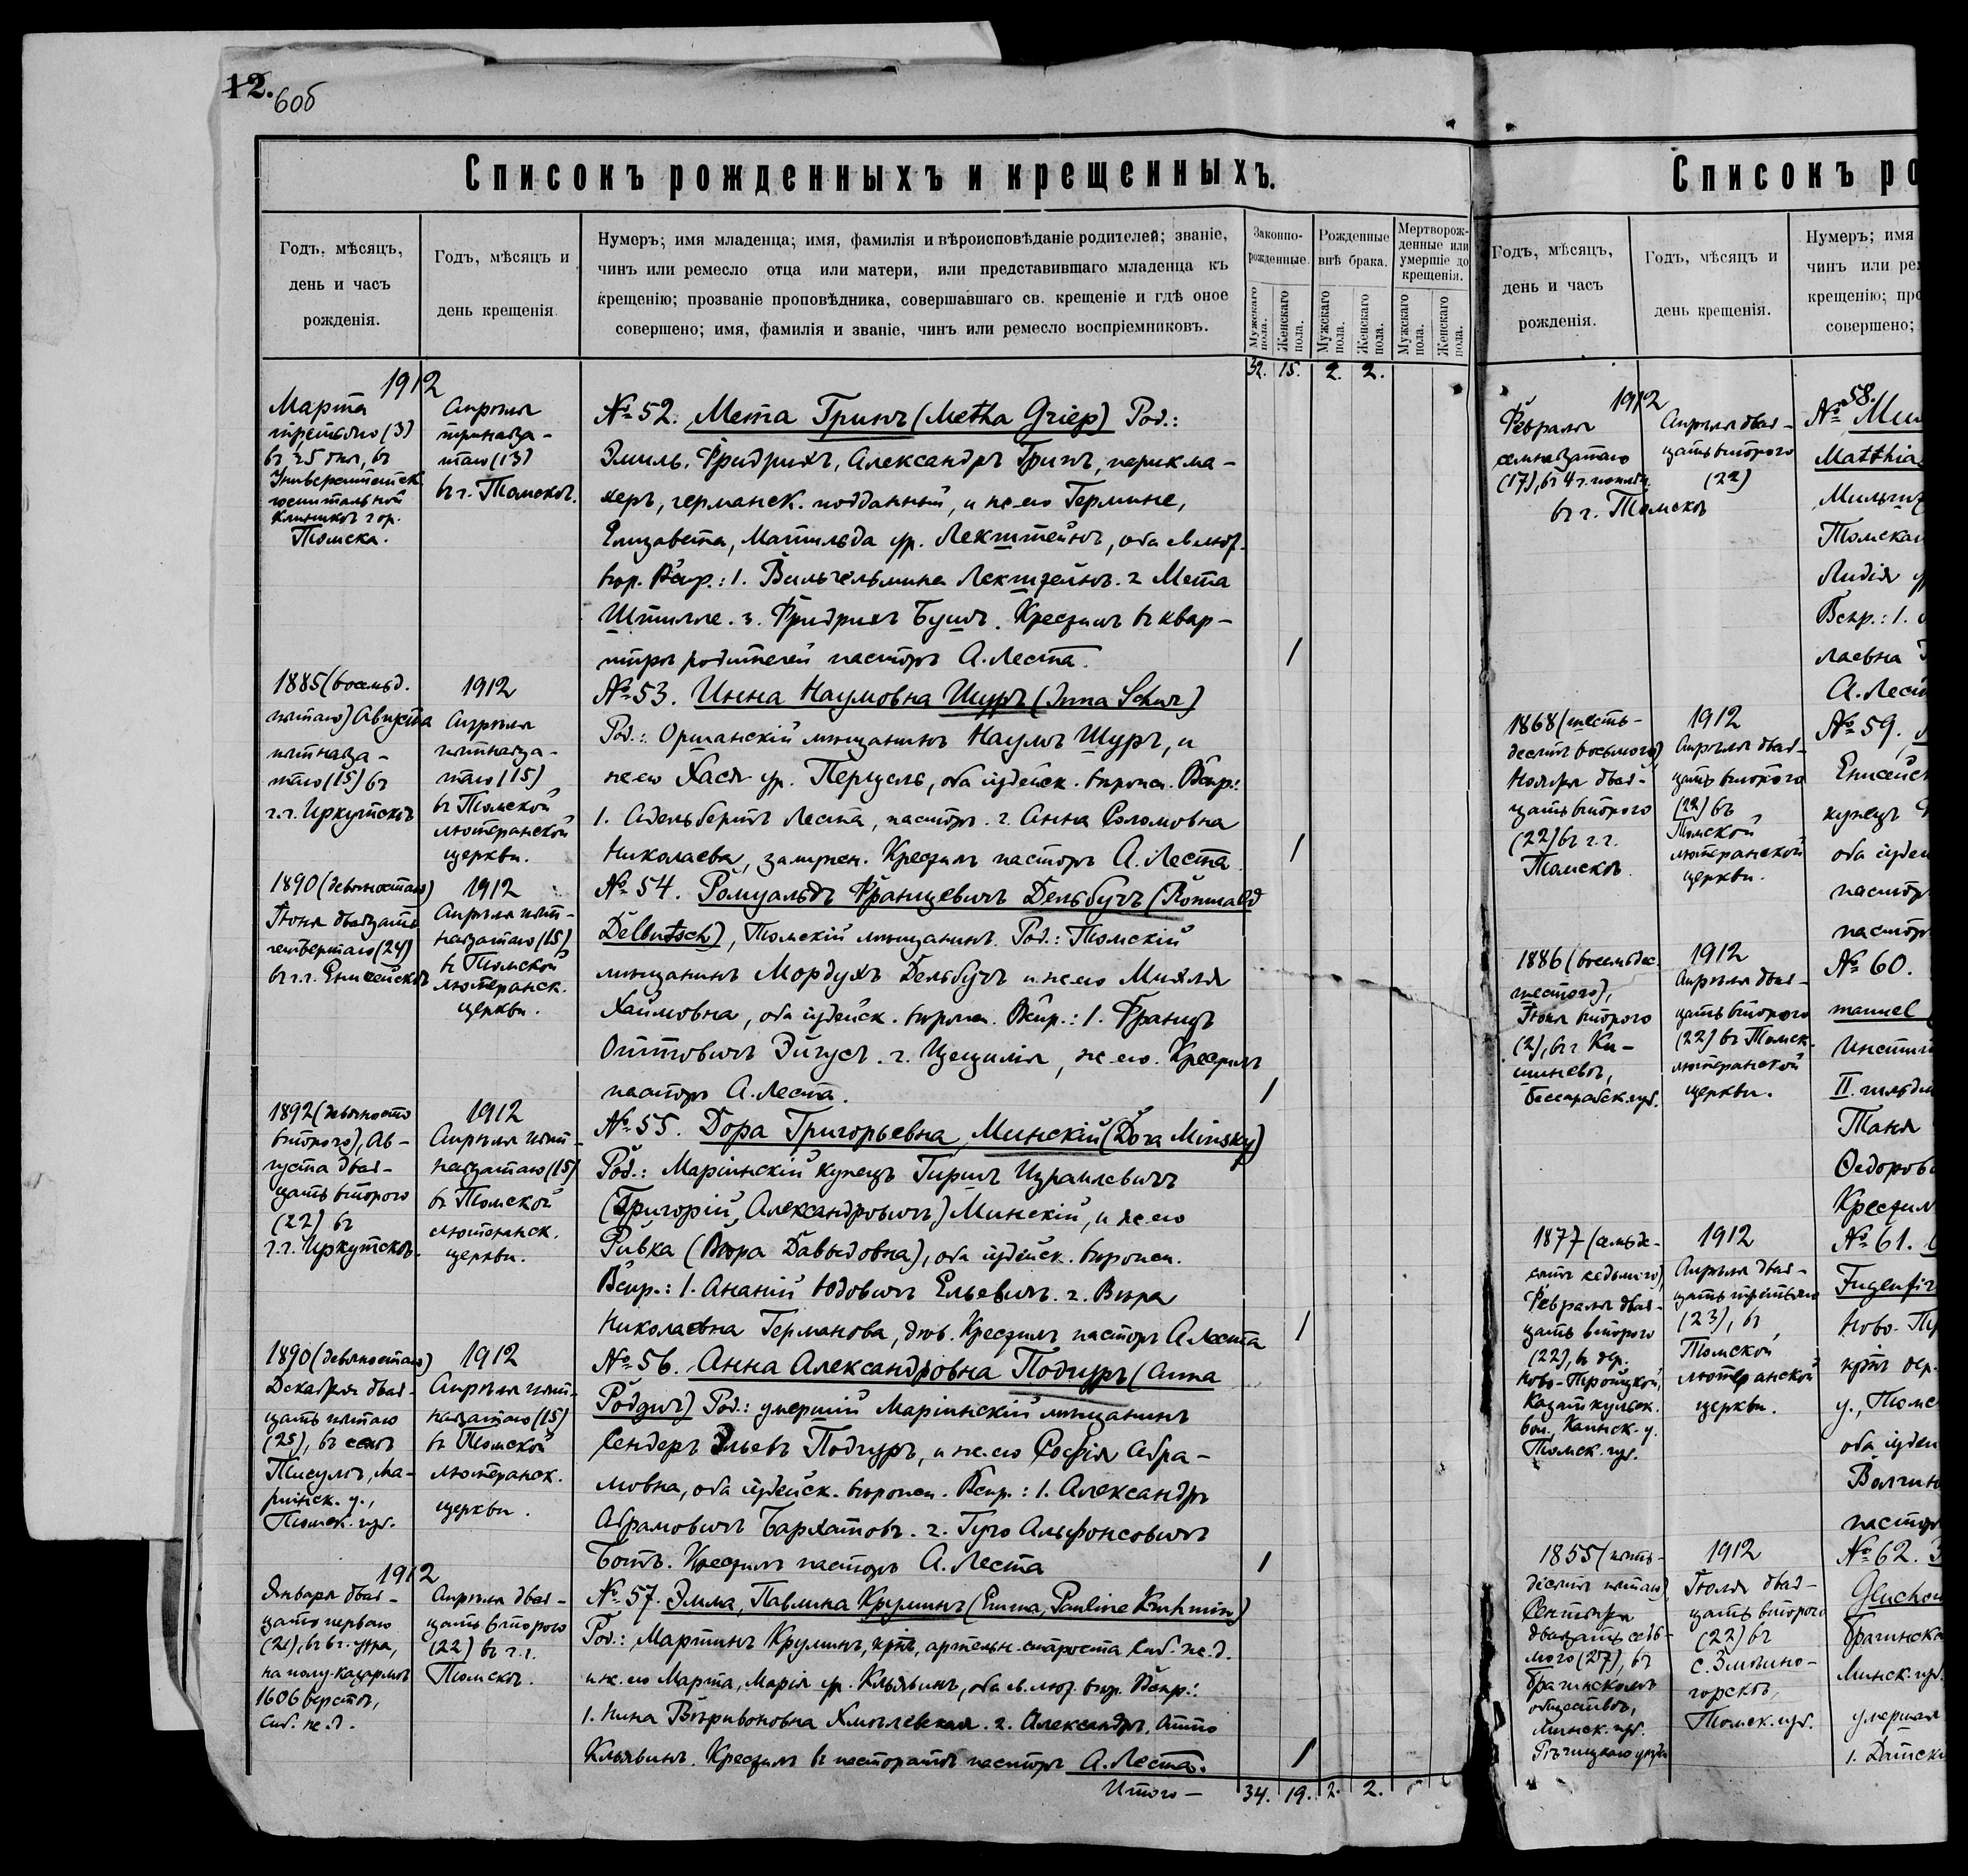 12.
6об
Списокъ рожденныхъ и крещенныхъ.
Годъ, мѣсяцъ,
день и часъ
рожденія.
Годъ, мѣсяцъ и
день крещенія.
Нумеръ; имя младенца; имя, фамилія и вѣроисповѣданіе родителей; званіе,
чинъ или ремесло отца или матери, или представившаго младенца къ
крещенію; прозваніе проповѣдника, совершавшаго св. крещеніе и гдѣ оное
совершено; имя, фамилія и званіе, чинъ или ремесло воспріемниковъ.
Законно-
рожденные.
Рожденные
внѣ брака.
Мертворож-
денные или
умершіе до
крещенія.
Мужскаго пола.
Женскаго пола.
Мужскаго пола.
Женскаго пола.
Мужскаго пола.
Женскаго пола.
32. 15. 2. 2.
1912
Марта
третьяго (3)
въ 25 дня, въ
Университетск.
госпитальной
клиникѣ гор.
Томска.
Апрѣля
тринадца-
таго (13)
въ г. Томскѣ.
№ 52. Мета Грипъ (Metha Griep) Род.:
Эмиль, Фридрихъ, Александръ Грипъ, парикма-
херъ, германск. подданный, и ж. его Термине,
Елизавета, Матильда ур. Лекштейнъ, оба ев. лют.
вѣр. Вспр.: 1. Вильгельмина Лекштейнъ. 2 Мета
Штилле. 3. Фридрихъ Бушъ. Крестилъ въ квар-
тирѣ родителей пасторъ А. Леста.
1
1885 (восемьд.
пятаго) Августа
пятнадца-
таго (15) въ
г. г. Иркутскѣ
1912
Апрѣля
пятнадца-
таго (15)
въ Томской
лютеранской
церкви.
№ 53. Инна Наумовна Шуръ (Inna Schur)
Род.: Оршанскій мѣщанинъ Наумъ Шуръ, и
ж. его Хася ур. Перцель, оба іудейск. вѣроисп. Вспр.:
1. Адельбертъ Леста, пасторъ. 2. Анна Соломовна
Николаева, замужн. Крестилъ пасторъ А. Леста.
1
1890 (девяностаго)
Іюня двадцать
четвертаго (24)
въ г. г. Енисейскѣ
1912
Апрѣля пят-
надцатаго (15)
въ Томской
лютеранск.
церкви.
№ 54. Ромуальдъ Францевичъ Дельбучъ (Romuald
Delbutsch), Томскій мѣщанинъ. Род.: Томскій
мѣщанинъ Мордухъ Дельбучъ и ж. его Михля
Хаимовна, оба іудейск. вѣроисп. Вспр.: 1. Францъ
Оттовичъ Эйгусъ. 2. Цецилія, ж. его. Крестилъ
пасторъ А. Леста.
1
1892 (девяносто
второго), Ав-
густа двад-
цать второго
(22) въ
г. г. Иркутскѣ.
1912
Апрѣля пят-
надцатаго (15)
въ Томской
лютеранск.
церкви.
№ 55. Дора Григорьевна Минскій (Dora Minsky)
Род.: Маріинскій купецъ Гиршъ Израилевичъ
(Григорій, Александровичъ) Минскій, и ж. его
Ривка (Вѣра Давыдовна), оба іудейск. вѣроисп.
Вспр.: 1. Ананій Юдовичъ Ельевичъ. 2. Вѣра
Николаевна Германова, дѣв. Крестилъ пасторъ А. Леста
1
1890 (девяностаго)
Декабря двад-
цать пятаго
(25), въ селѣ
Тисулъ, Ма-
ріинск. у.,
Томск. губ.
1912
Апрѣля пят-
надцатаго (15)
въ Томской
лютеранск.
церкви.
№ 56. Анна Александровна Подгуръ (Anna
Podgur) Род.: умершій Маріинскій мѣщанинъ
Сендеръ Эльевъ Подгуръ, и ж. его Софія Абра-
мовна, оба іудейск. вѣроисп. Вспр.: 1. Александръ
Абрамовичъ Бархатовъ. 2. Гуго Альфонсовичъ
Ботъ. Крестилъ пасторъ А. Леста
1
1912
Января двад-
цать перваго
(21), въ 6 ч. утра,
на полу-казармѣ
1606 верстѣ,
Сиб. ж. д.
Апрѣля двад-
цать второго
(22) въ г. г.
Томскѣ.
№ 57. Эмма, Павлина Круминъ (Emma, Pauline Kruhmin)
Род.: Мартинъ Круминъ, крт., артельн. староста Сиб. ж. д.
и ж. его Марта, Марія ур. Клявинъ, оба ев. лют. вѣр. Вспр.:
1. Нина Виривоновна Хмѣлевская. 2. Александръ, Отто
Клявинъ. Крестилъ въ пасторатѣ пасторъ А. Леста.
1
Итого — 34. 19. 2. 2.
Списокъ ро
Годъ, мѣсяцъ,
день и часъ
рожденія.
Годъ, мѣсяцъ и
день крещенія.
Нумеръ; имя
чинъ или рем
крещенію; про
совершено;
1912
Февраля
семнадцатаго
(17), въ 4 ч. пополуд.
въ г. Томскѣ
Апрѣля двад-
цать второго
(22)
№ 58.
Matthia
Томская
Лидія ур
Вспр.: 1.
лаевна
А. Лест
1868 (шесть-
десятъ восьмого)
Ноября двад-
цать второго
(22) въ г. г.
Томскѣ.
1912
Апрѣля двад-
цать второго
(22) въ
Томской
лютеранской
церкви.
№ 59.
Енисейск
купецъ
оба іудей
пасторъ
пасторъ
1886 (восемьдес.
шестого),
Іюня второго
(2), въ г. Ки-
шиневѣ,
Бессарабск. губ.
1912
Апрѣля двад-
цать второго
(22) въ Томск.
лютеранской
церкви.
№ 60.
manuel
Инстит
II. гильді
Таня
Федоров
Крестил
1877 (семьде-
сятъ седьмого)
Февраля двад-
цать второго
(22), въ дер.
Ново-Троицкой,
Казаткульск.
вол., Каинск. у.
Томск. губ.
1912
Апрѣля двад-
цать третьяго
(23), въ
Томской
лютеранской
церкви.
№ 61.
Fugenfir
Ново-Тр
крт. дер.
у., Томс
оба іудей
Волгин
пасторъ
1855 (пять-
десятъ пятаго)
Сентября
двадцать седь-
мого (27), въ
Брагинскомъ
обществѣ,
Минск. губ.
Рѣчицкаго уѣзда
1912
Іюля двад-
цать второго
(22) въ
с. Змѣино-
горскѣ,
Томск. губ.
№ 62. Э
Gluchow
Брагинск
Минск. губ.
умершая